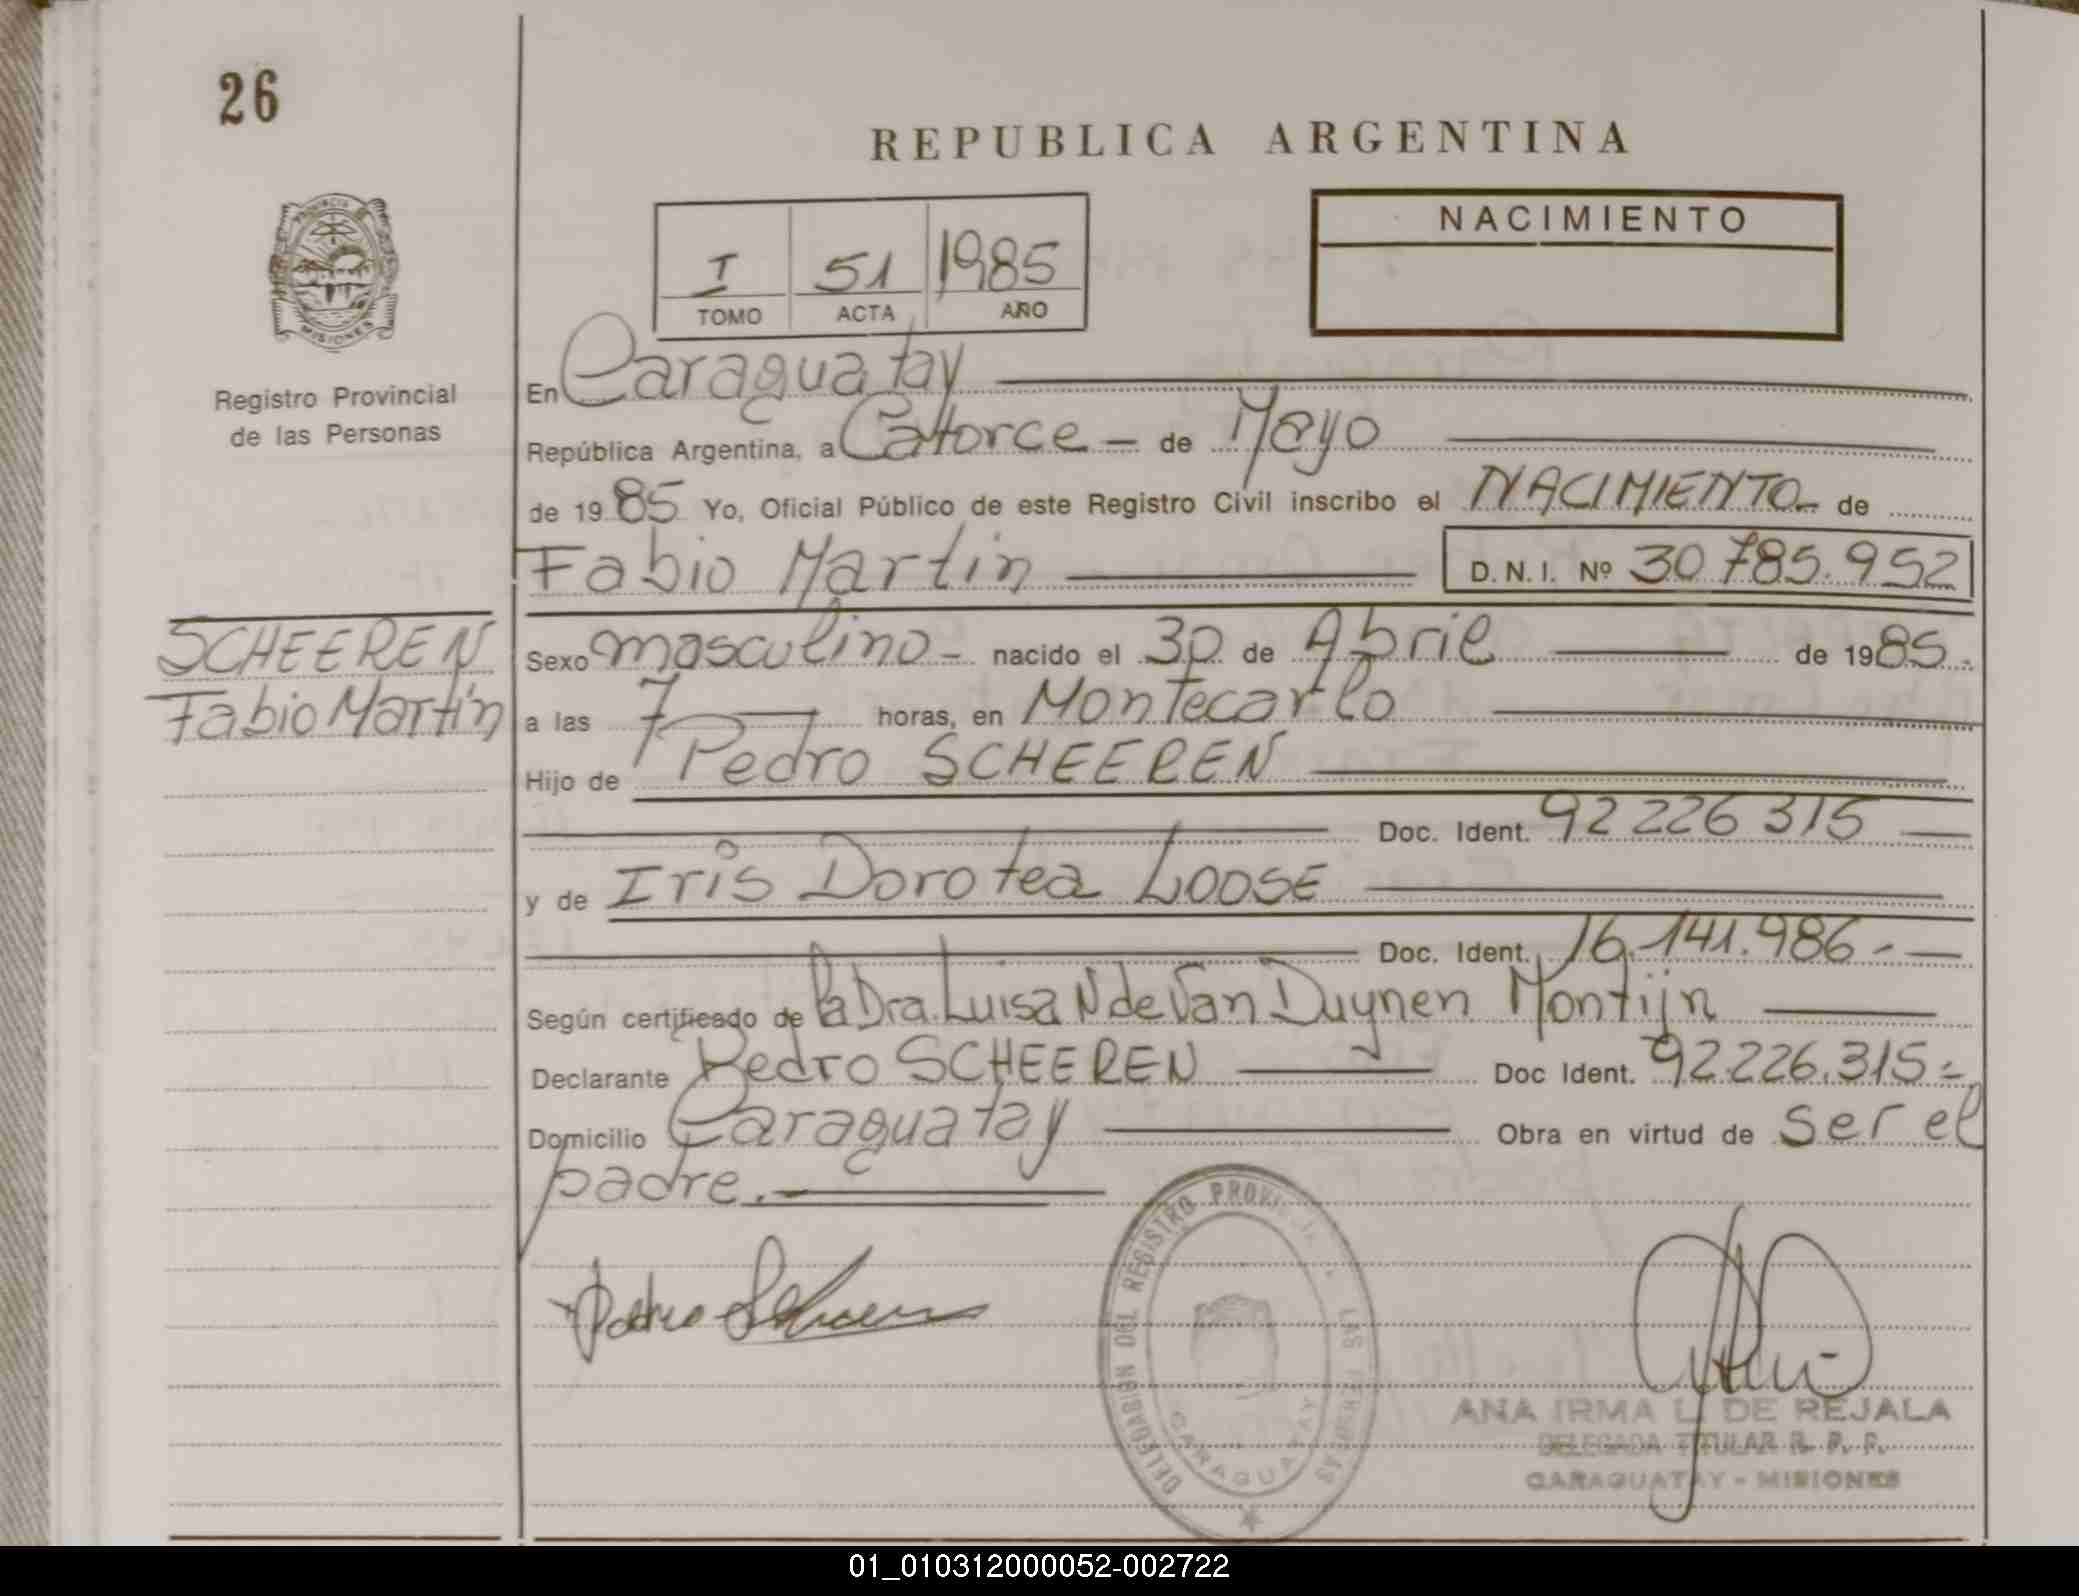 26
REPUBLICA ARGENTINA
PROVINCIA
MISIONES
NACIMIENTO
I 51 1985
TOMO ACTA AÑO
Registro Provincial
de las Personas
En Caraguatay
República Argentina, a Catorce — de Mayo
de 1985 Yo, Oficial Público de este Registro Civil inscribo el NACIMIENTO de
Fabio Martin D.N.I. Nº 30785.952
SCHEEREN
Fabio Martín
Sexo masculino - nacido el 30 de Abril de 1985.
a las 7 horas, en Montecarlo
Hijo de Pedro SCHEEREN
Doc. Ident. 92 226 315
y de Iris Dorotea LOOSE
Doc. Ident. 16.141.986-
Según certificado de la Dra. Luisa N de Van Duynen Montijn
Declarante Pedro SCHEEREN Doc Ident. 92.226.315-
Domicilio Caraguatay Obra en virtud de ser el
padre.-
Pedro Scheeren
DELEGACION DEL REGISTRO PROVINCIAL LAS PERSONAS
CARAGUATAY
ANA IRMA L. DE REJALA
DELEGADA TITULAR R. P. P.
CARAGUATAY - MISIONES
01_010312000052-002722